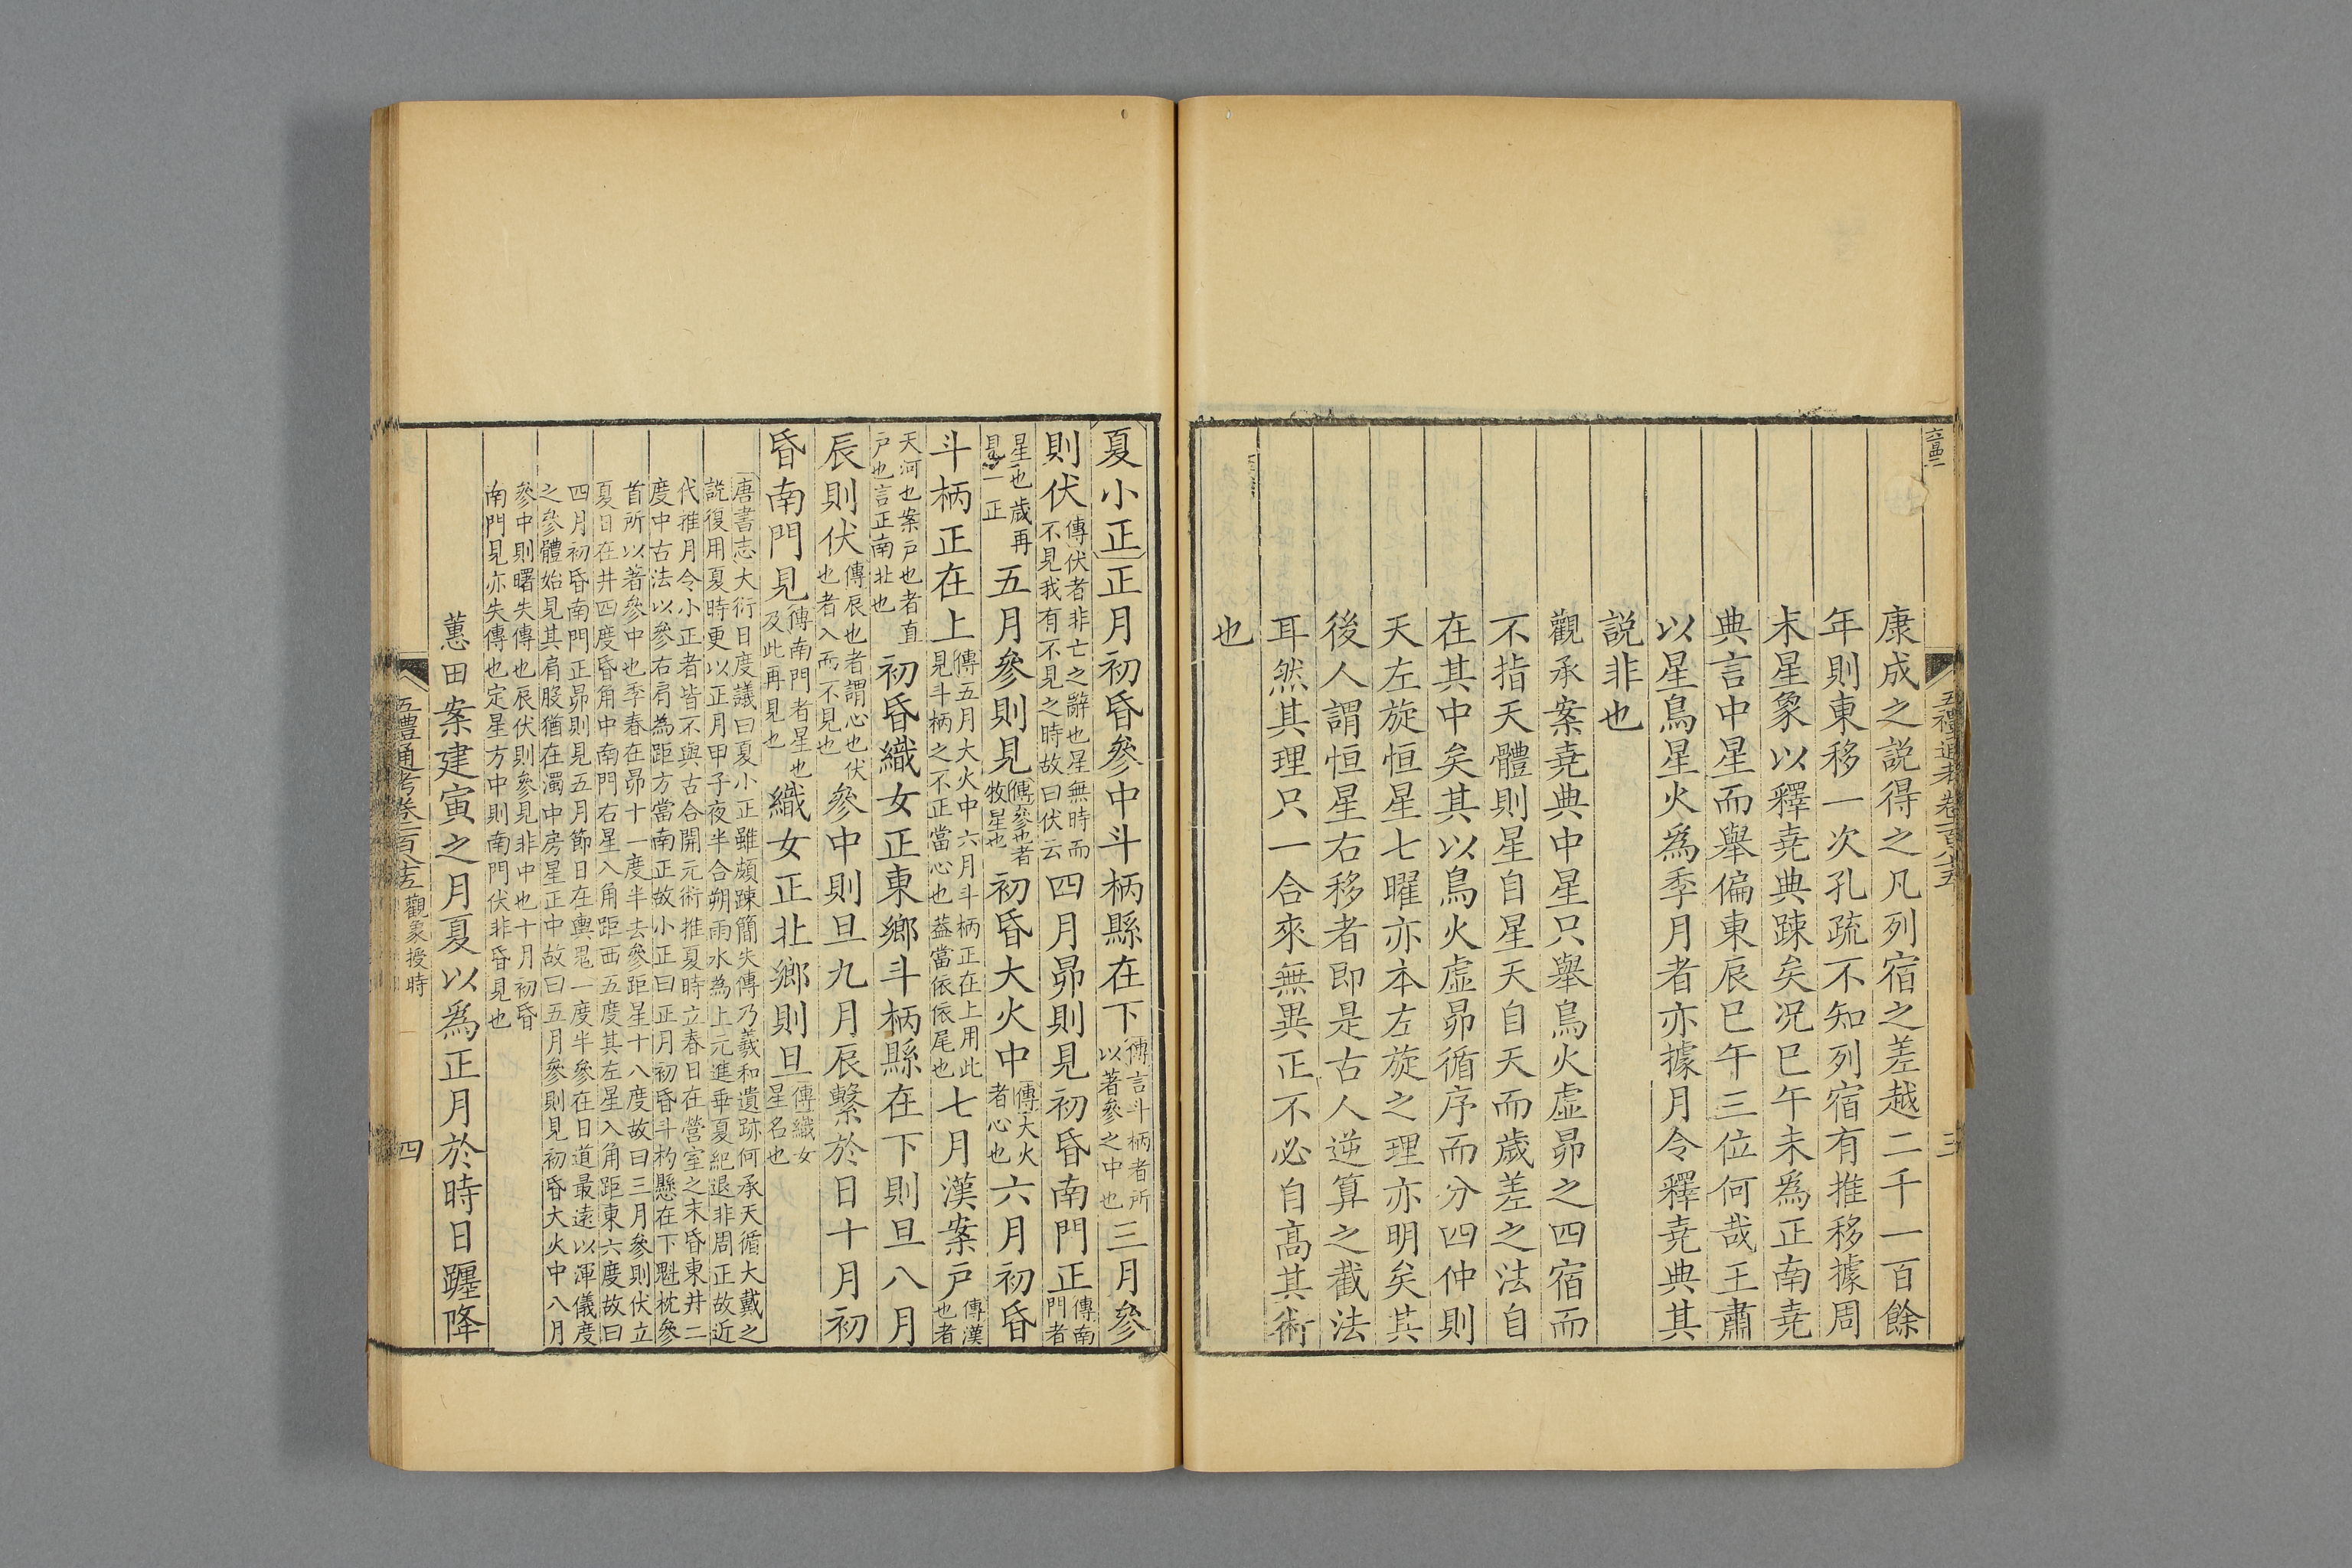 康成之説得之凡列宿之差越二千一百餘
年則東移一次孔疏不知列宿有推移據周
末星象以釋堯典踈矣况巳午未為正南堯
典言中星而舉偏東辰巳午三位何哉王肅
以星鳥星火爲季月者亦據月令釋堯典其
説非也
觀承案堯典中星只舉鳥火虛昴之四宿而
不指天體則星自星天自天而歲差之法自
在其中矣其以鳥火虛昴循序而分四仲則
天左旋恒星七曜亦本左旋之理亦明矣其
後人謂恒星右移者即是古人逆算之截法
耳然其理只一合來無異正不必自高其術
也
五禮通考卷一百八十五
三
夏小正正月初昏參中斗柄縣在下傳言斗柄者所以著參之中也三月參
則伏傳伏者非亡之辭也星無時而不見我有不見之時故曰伏云四月昴則見初昏南門正傳南門者
星也歲再見一正五月參則見傳參也者牧星也初昏大火中傳大火者心也六月初昏
斗柄正在上傳五月大火中六月斗柄正在上用此見斗柄之不正當心也蓋當依依尾也七月漢案戶傳漢也者
天河也案戶也者直戶也言正南北也初昏織女正東鄉斗柄縣在下則旦八月
辰則伏傳辰也者謂心也伏也者入而不見也參中則旦九月辰繫於日十月初
昏南門見傳南門者星也及此再見也織女正北鄉則旦傳織女星名也
唐書志大衍日度議曰夏小正雖頗踈簡失傳乃羲和遺跡何承天循大戴之
説復用夏時更以正月甲子夜半合朔雨水為上元進乖夏紀退非周正故近
代推月令小正者皆不與古合開元術推夏時立春日在營室之末昏東井二
度中古法以參右肩為距方當南正故小正曰正月初昏斗杓懸在下魁枕參
首所以著參中也季春在昴十一度半去參距星十八度故曰三月參則伏立
夏日在井四度昏角中南門右星入角距西五度其左星入角距東六度故曰
四月初昏南門正昴則見五月節日在輿鬼一度半參在日道最遠以渾儀度
之參體始見其肩股猶在濁中房星正中故曰五月參則見初昏大火中八月
參中則曙失傳也辰伏則參見非中也十月初昏
南門見亦失傳也定星方中則南門伏非昏見也
蕙田案建寅之月夏以爲正月於時日躔降
五禮通考卷一百八十五 觀象授時
四